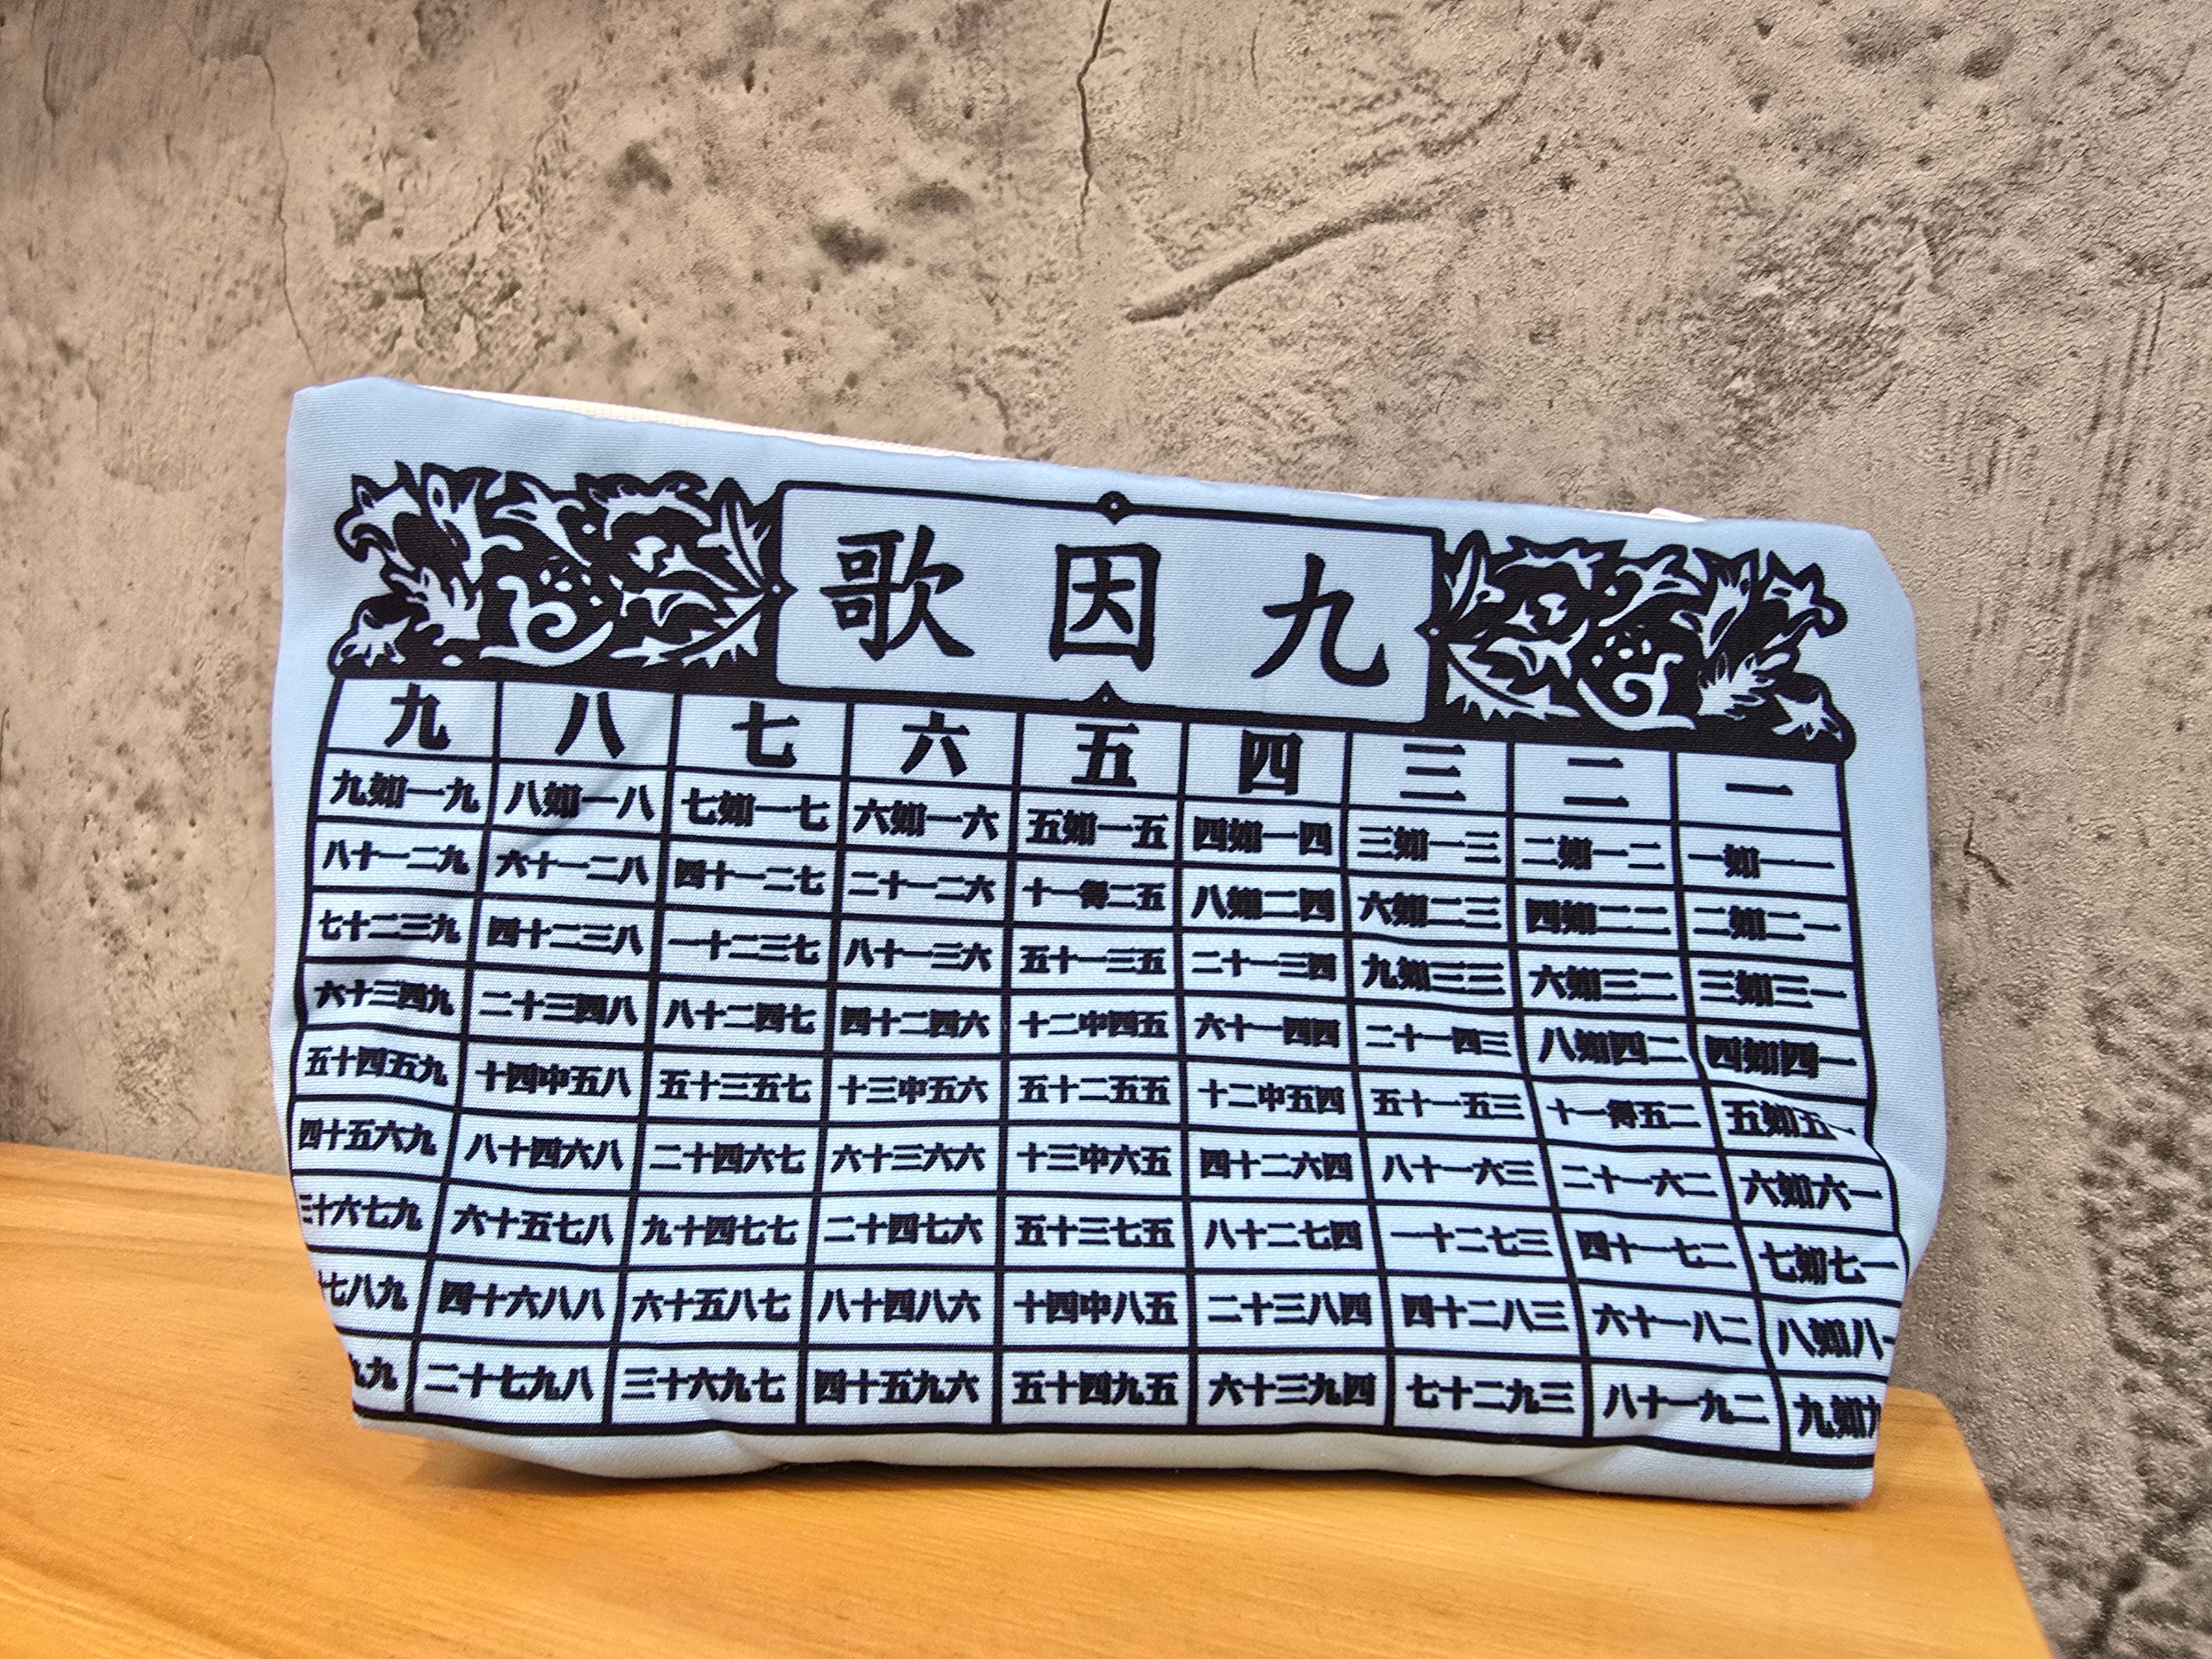 九因歌
一 二 三 四 五 六 七 八 九
一一如一 二一如二 三一如三 四一如四 五一如五 六一如六 七一如七 八一如八 九一如九
一二如二 二二如四 三二如六 四二如八 五二得一十 六二一十二 七二一十四 八二一十六 九二一十八
一三如三 二三如六 三三如九 四三一十二 五三一十五 六三一十八 七三二十一 八三二十四 九三二十七
一四如四 二四如八 三四一十二 四四一十六 五四中二十 六四二十四 七四二十八 八四三十二 九四三十六
一五如五 二五得一十 三五一十五 四五中二十 五五二十五 六五中三十 七五三十五 八五中四十 九五四十五
一六如六 二六一十二 三六一十八 四六二十四 五六中三十 六六三十六 七六四十二 八六四十八 九六五十四
一七如七 二七一十四 三七二十一 四七二十八 五七三十五 六七四十二 七七四十九 八七五十六 九七六十三
一八如八 二八一十六 三八二十四 四八三十二 五八中四十 六八四十八 七八五十六 八八六十四 九八七
九如九 二九一十八 三九二十七 四九三十六 五九四十五 六九五十四 七九六十三 八九七十二 九九